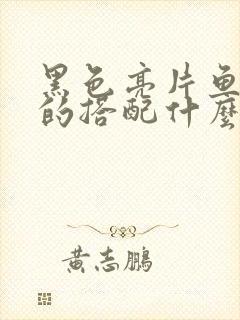 黑色亮片鱼
的搭配什麼
黄志鵬